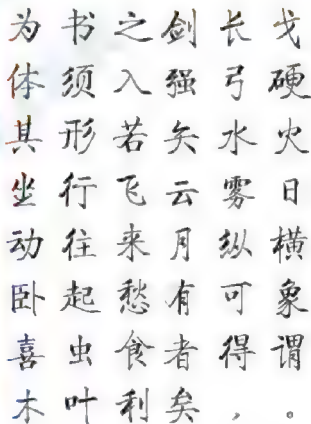 为书之剑长戈
体须入强弓硬
其形若矢水火
坐行飞云雾日
动往来月纵横
卧起愁有可象
喜虫食者得谓
木叶利矣，。